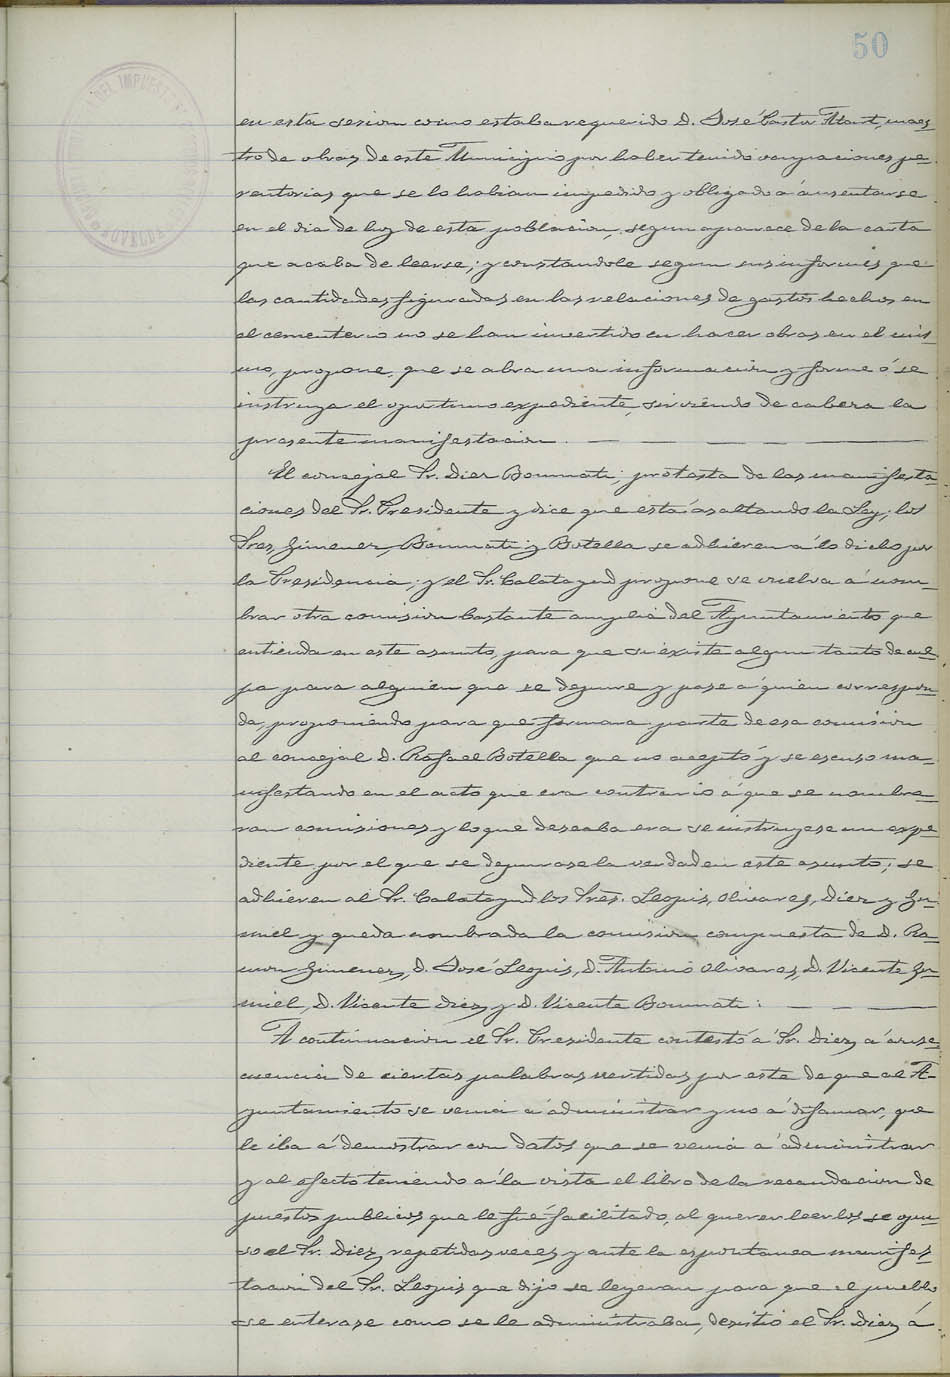 50
en esta sesion como estaba requerido D. José Cantu Atart, maes-
tro de obras de este Municipio por haber tenido ocupaciones pe-
rentorias que se lo habian impedido y obligado á ausentarse
en el dia de hoy de esta poblacion, segun aparece de la carta
que acaba de leerse; y constandole segun sus informes que
las cantidades figuradas en las relaciones de gastos hechos en
el cementerio no se han invertido en hacer obras en el mis-
mo, propone, que se abra una informacion y forme ó se
instruya el oportuno expediente, sirviendo de cabeza la
presente manifestacion.
El concejal Sr. Diez Bonmati, protesta de las manifesta-
ciones del Sr. Presidente y dice que está asaltando la Ley; los
Sres. Gimenez, Bonmati y Botella se adhieren á lo dicho por
la Presidencia; y el Sr. Calatayud propone se vuelva á nom-
brar otra comision bastante amplia del Ayuntamiento que
entienda en este asunto, para que si existe algun tanto de cul-
pa para alguien que se depure y pase á quien correspon-
da, proponiendo para que formara parte de esa comision
al concejal D. Rafael Botella que no aceptó y se escuso ma-
nifestando en el acto que era contrario á que se nombra-
ran comisiones y lo que deseaba era se instruyese un expe-
diente por el que se depurase la verdad en este asunto; se
adhieren al Sr. Calatayud los Sres. Llopis, Olivares, Diez y Gu-
miel y queda nombrada la comision compuesta de D. Ra-
mon Gimenez, D. José Llopis, D. Antonio Olivares, D. Vicente Gu-
miel, D. Vicente Diez y D. Vicente Bonmati.
A continuacion el Sr. Presidente contestó á Sr. Diez á conse-
cuencia de ciertas palabras vertidas por este de que al A-
yuntamiento se venia á administrar y no á difamar, que
le iba á demostrar con datos que se venia á administrar
y al efecto teniendo á la vista el libro de la recaudacion de
puestos publicos que le fué facilitado, al querer leerlos se opu-
so el Sr. Diez repetidas veces y ante la espontanea manifes-
tacion del Sr. Llopis que dijo se leyeran para que el pueblo
se enterase como se le administraba, desistió el Sr. Diez á